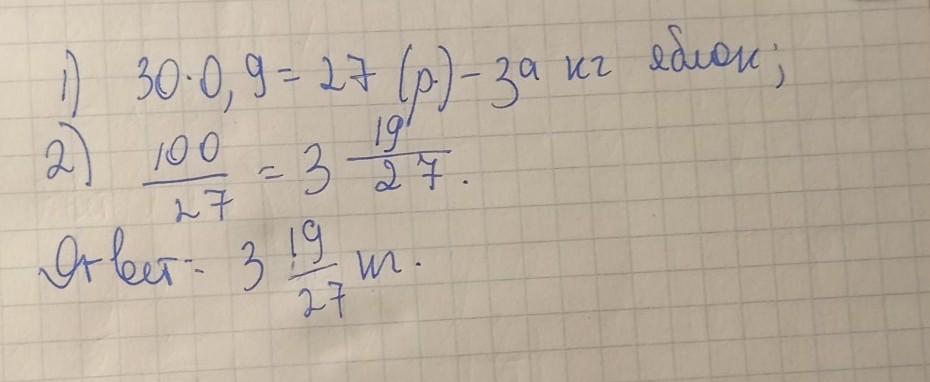 1) 30·0,9=27 (р)-за кг яблок;
2) 100/27 = 3 19/27.
Ответ: 3 19/27 кг.